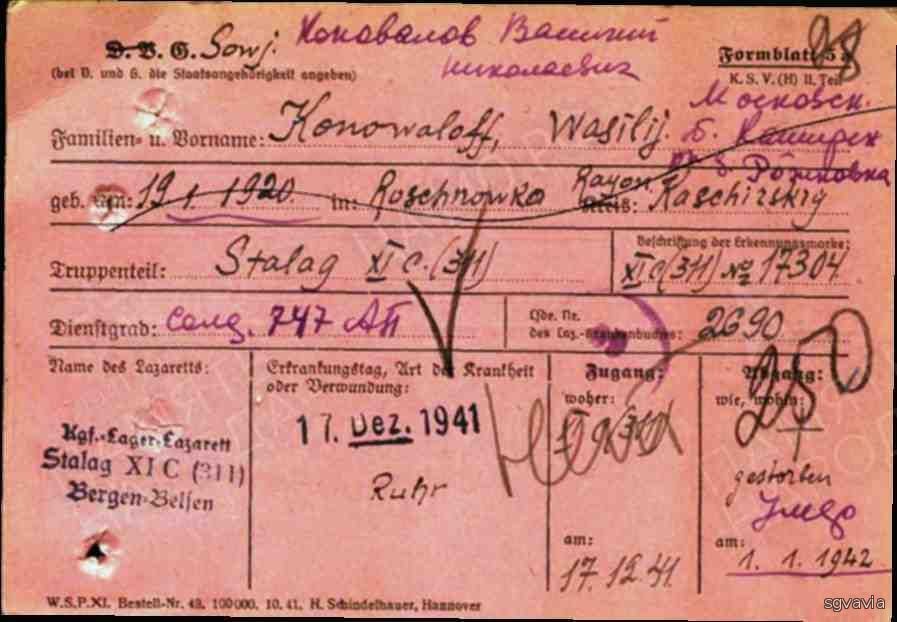 D. V. G. Sowj. Коновалов Василий
Николаевич
(bei V. und G. die Staatsangehörigkeit angeben)
Formblatt 5a
K. S. V. (H) II. Teil
98
Московск.
Familien- u. Vorname: Konowaloff, Wasilij. Б. Каширск
Рожковка
geb. am: 19. 1. 1920. in: Roschnowka Rayon Kreis: Kaschirskiy
Truppenteil: Stalag XI C. (311)
Beschriftung der Erkennungsmarke:
XI C (311) № 17304
Dienstgrad: солд. 747 АП
Lfde. Nr.
des Laz.-Krankenbuches: 2690
Name des Lazaretts:
Erkrankungstag, Art der Krankheit
oder Verwundung:
Zugang:
woher:
Abgang:
wie, wohin:
250
Kgf.-Lager-Lazarett
Stalag XI C (311)
Bergen-Belsen
17. Dez. 1941
Ruhr
gestorben
am:
17.12.41
am:
1. 1. 1942
W.S.P.XI. Bestell-Nr. 48. 100000. 10. 41. H. Schindelhauer, Hannover
sgvavia